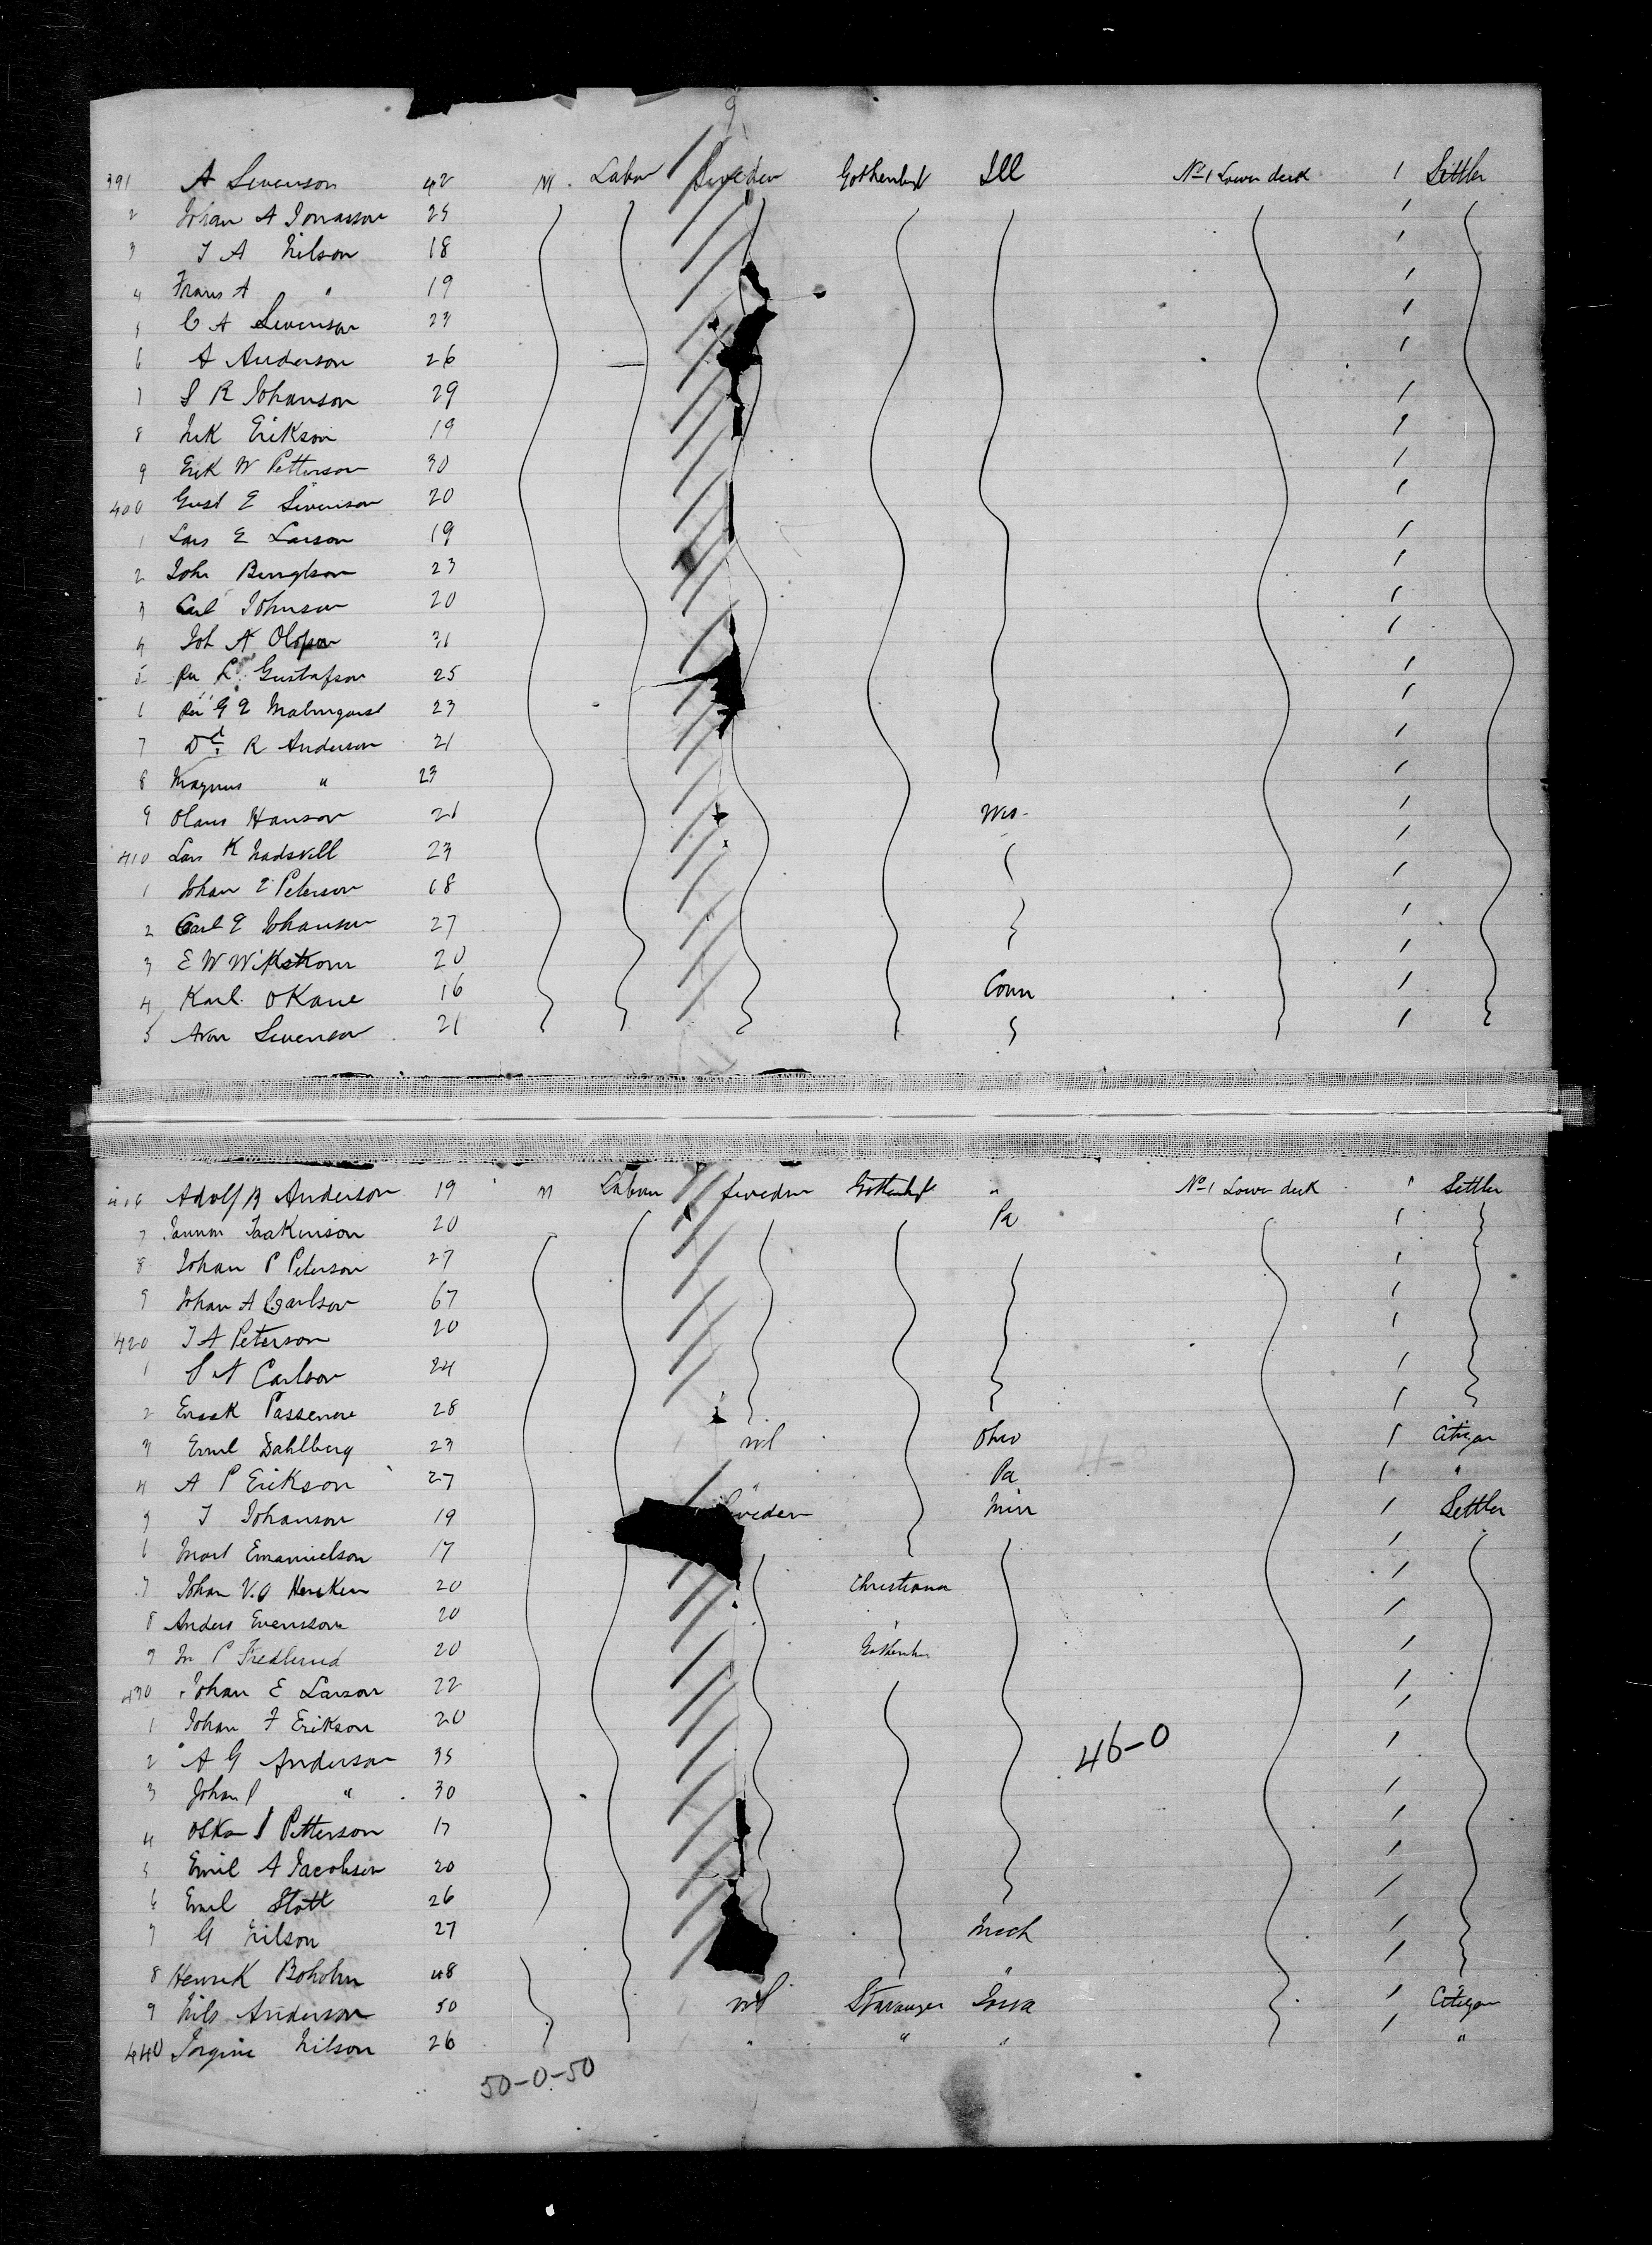 9
391 A Swenson 42 M. Labor Sweden Gothenbg Ill No 1 Lower deck 1 Settler
2 Johan A Jonasson 25 1
3 J A Nilson 18 1
4 Frans A " 19 1
5 C A Swenson 23 1
6 A Anderson 26 1
7 S R Johanson 29 1
8 Erikson 19 1
9 Erik W Petterson 30 1
400 Gust E Swenson 20 1
1 Lars E Larson 19 1
2 John Bengtson 23 1
3 Carl Johnson 20 1
4 Joh A Olofson 31 1
5 Per L. Gustafson 25 1
6 Per G E Malmquist 23 1
7 Dd R Anderson 21 1
8 Magnus " 23 1
9 Olaus Hanson 21 Wis. 1
410 Lars K 23 1
1 Johan E Peterson 18 1
2 Carl E Johanson 27 1
3 E W Wikstrom 20 1
4 Karl O Kane 16 Conn 1
5 Aron Swenson 21 1
416 Adolf B Anderson 19 M Labour Sweden Gothenbg " No 1 Lower deck 1 Settler
7 Isakinson 20 Pa 1
8 Johan P Peterson 27 1
9 Johan A Carlson 67 1
420 J A Peterson 20 1
1 S A Carlson 24 1
2 28 1
3 Ernil Dahlberg 23 Ohio 1 Citizen
4 A P Erikson 27 Pa 1 "
5 J Johanson 19 Sweden Min 1 Settler
6 Emanuelson 17 1
7 Johan V.O 20 Christiana 1
8 Anders Evensson 20 1
9 P Fredlund 20 Gothenbu 1
430 Johan E Larson 22 1
1 Johan F Erikson 20 1
2 A G Anderson 35 46-0 1
3 Johan P " 30 1
4 Oskar Petterson 17 1
5 Emil A Jacobson 20 1
6 Emil Slott 26 1
7 G Nilson 27 Mich 1
8 Henrik Boholm 48 " 1
9 Nils Anderson 50 Stavanger Iowa 1 Citizen
440 Nilson 26 " " " "
50-0-50